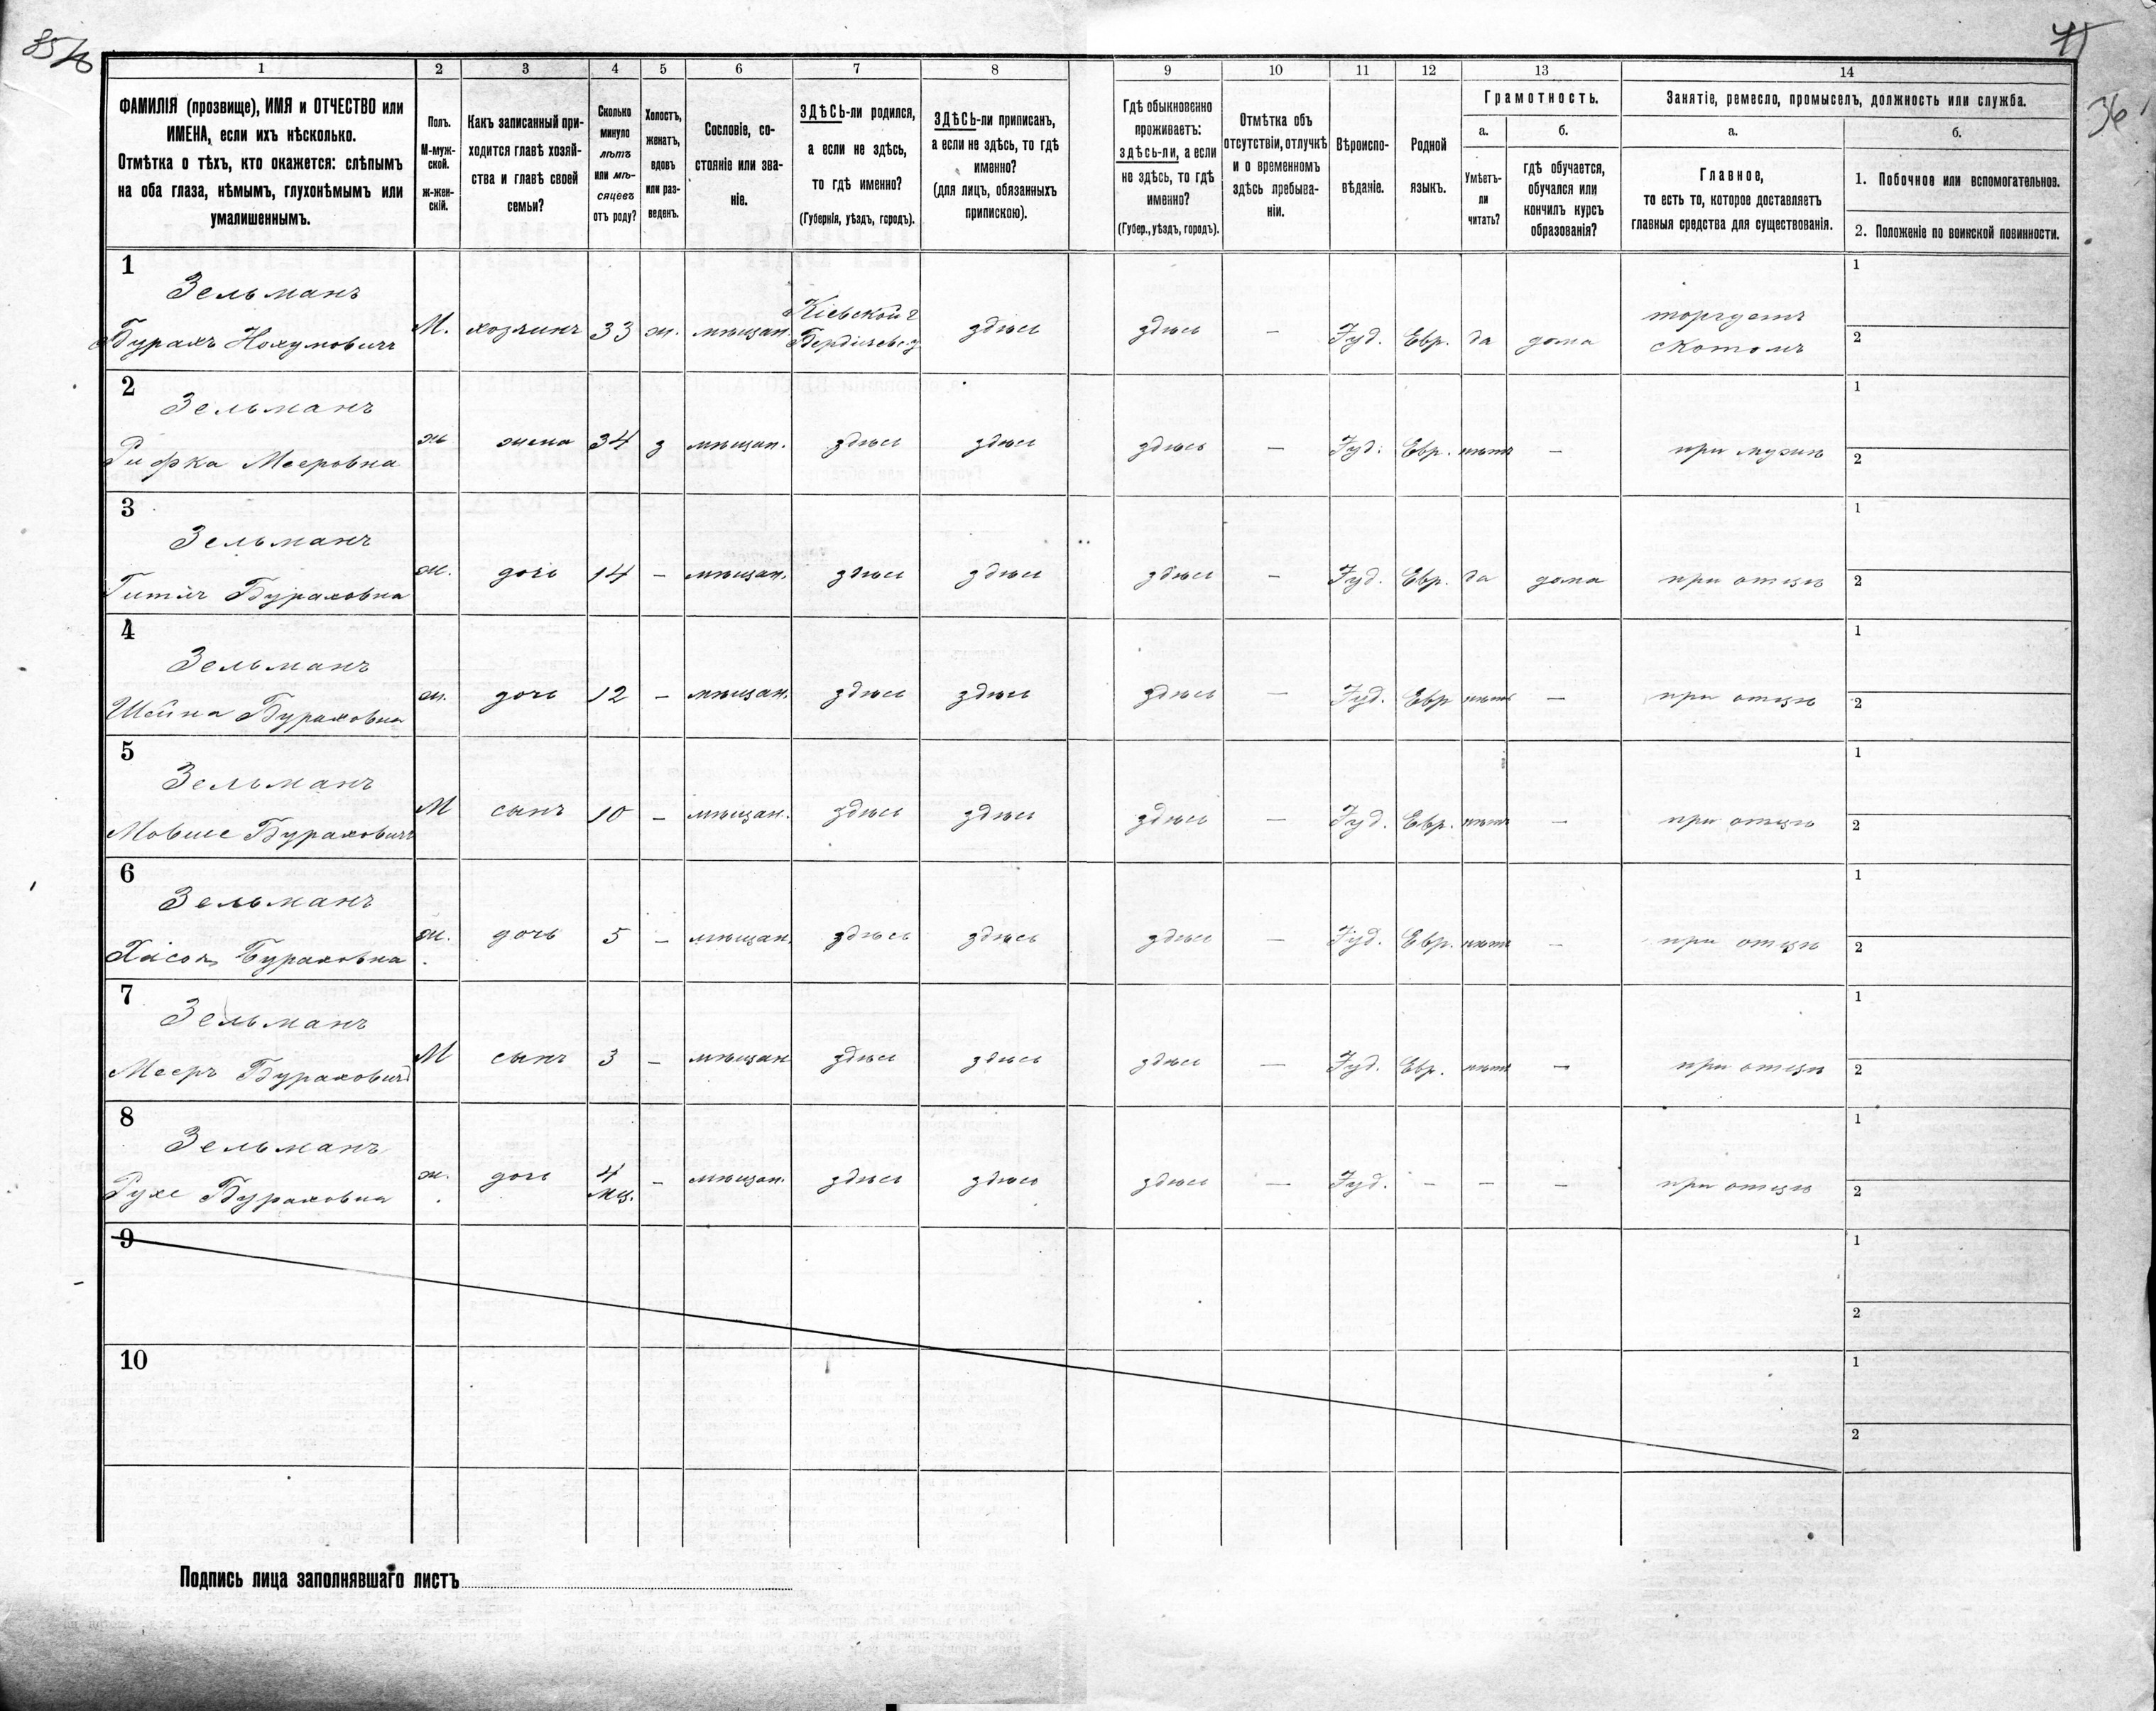 1 2 3 4 5 6 7 8 9 10 11 12 13 14
ФАМИЛІЯ (прозвище), ИМЯ и ОТЧЕСТВО или
ИМЕНА, если ихъ нѣсколько.
Отмѣтка о тѣхъ, кто окажется: слѣпымъ
на оба глаза, нѣмымъ, глухонѣмымъ или
умалишеннымъ.
Полъ.
М-муж-
ской.
ж-жен-
скій.
Какъ записанный при-
ходится главѣ хозяй-
ства и главѣ своей
семьи?
Сколько
минуло
лѣтъ
или мѣ-
сяцевъ
отъ роду?
Холостъ,
женатъ,
вдовъ
или раз-
веденъ.
Сословіе, со-
стояніе или зва-
ніе.
ЗДѢСЬ-ли родился,
а если не здѣсь,
то гдѣ именно?
(Губернія, уѣздъ, городъ).
ЗДѢСЬ-ли приписанъ,
а если не здѣсь, то гдѣ
именно?
(для лицъ, обязанныхъ
припискою).
Гдѣ обыкновенно
проживаетъ:
здѣсь-ли, а если
не здѣсь, то гдѣ
именно?
(Губер., уѣздъ, городъ).
Отмѣтка объ
отсутствіи, отлучкѣ
и о временномъ
здѣсь пребыва-
ніи.
Вѣроиспо-
вѣданіе.
Родной
языкъ.
Грамотность.
а.
Умѣетъ-
ли
читать?
б.
гдѣ обучается,
обучался или
кончилъ курсъ
образованія?
Занятіе, ремесло, промыселъ, должность или служба.
а.
Главное,
то есть то, которое доставляетъ
главныя средства для существованія.
б.
1. Побочное или вспомогательное.
2. Положеніе по воинской повинности.
36
1
Зельманъ
Бурахъ Нохумовичъ М. хозяинъ 33 ж. мѣщан. Кіевской г. Бердичевс. у. здѣсь здѣсь — Іуд. Евр. да дома торгуетъ скотомъ 1 2
2
Зельманъ
Рифка Мееровна ж жена 34 з мѣщан. здѣсь здѣсь здѣсь — Іуд. Евр. нѣтъ — при мужѣ 1 2
3
Зельманъ
Гитля Бураховна ж. дочь 14 — мѣщан. здѣсь здѣсь здѣсь — Іуд. Евр. да дома при отцѣ 1 2
4
Зельманъ
Шейна Бураховна ж. дочь 12 — мѣщан. здѣсь здѣсь здѣсь — Іуд. Евр нѣтъ — при отцѣ 1 2
5
Зельманъ
Мовше Бураховичъ М сынъ 10 — мѣщан. здѣсь здѣсь здѣсь — Іуд. Евр. нѣтъ — при отцѣ 1 2
6
Зельманъ
Бураховна ж. дочь 5 — мѣщан. здѣсь здѣсь здѣсь — Іуд. Евр. нѣтъ — при отцѣ 1 2
7
Зельманъ
Мееръ Бураховичъ М сынъ 3 — мѣщан здѣсь здѣсь здѣсь — Іуд. Евр. нѣтъ — при отцѣ 1 2
8
Зельманъ
Рухе Бураховна ж. дочь 4 мц. — мѣщан. здѣсь здѣсь здѣсь — Іуд. — — — при отцѣ 1 2
9 1 2
10 1 2
Подпись лица заполнявшаго листъ